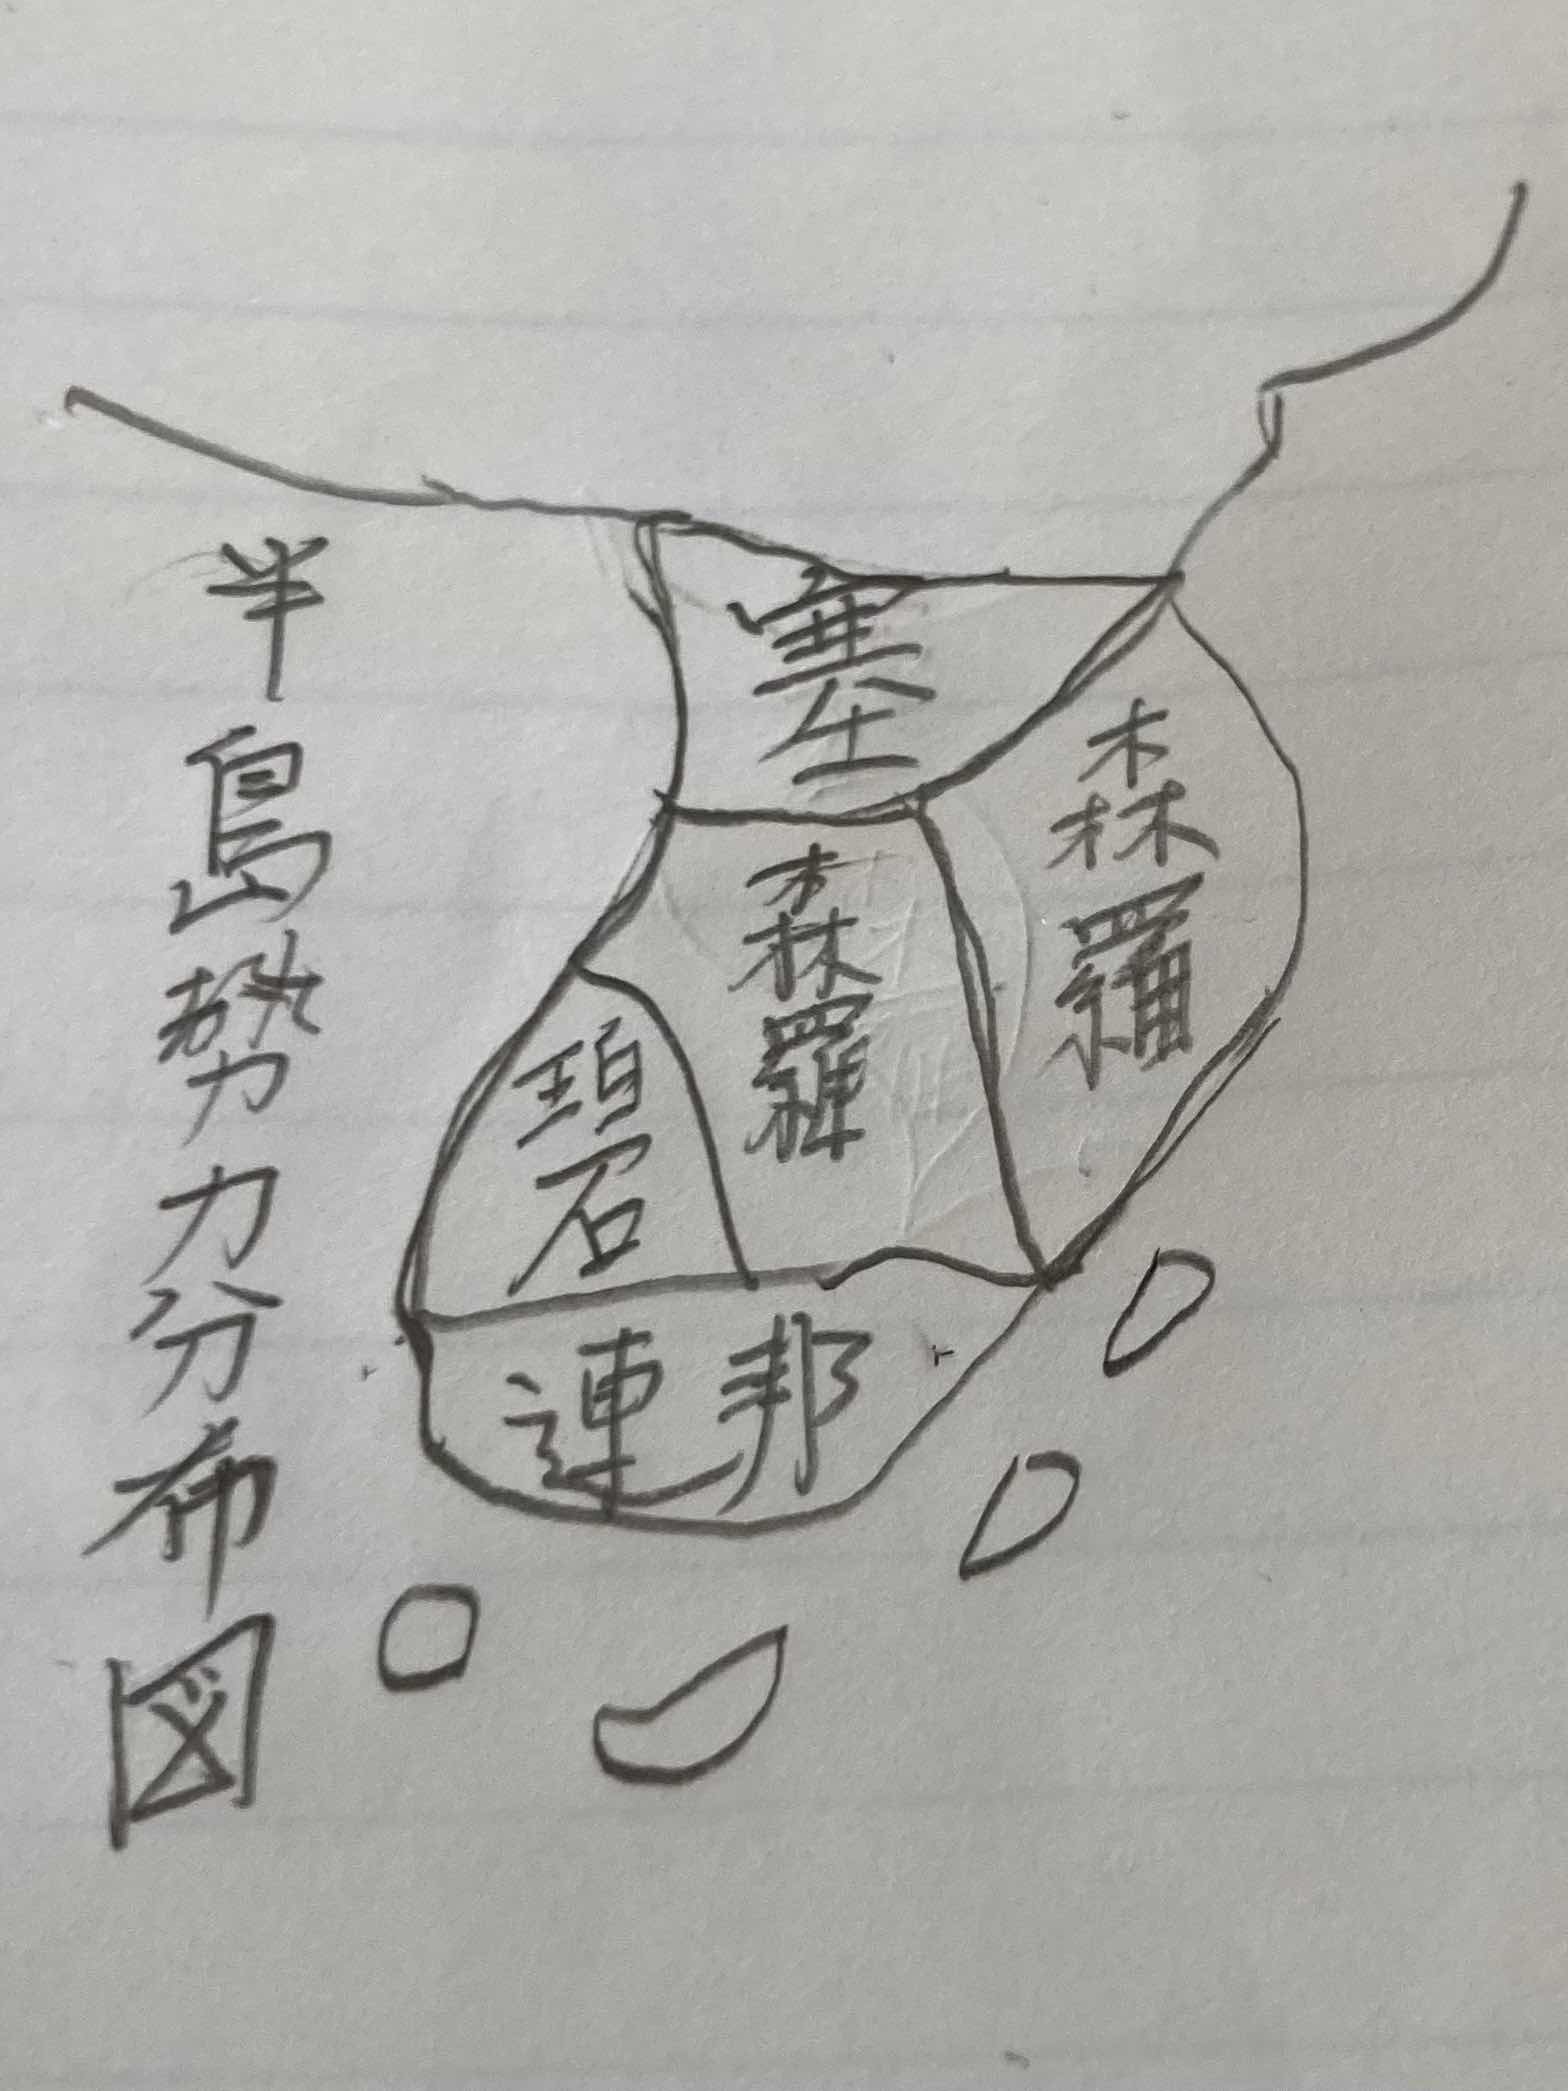 半島勢力分布図
塞
森羅
森羅
碧
連邦